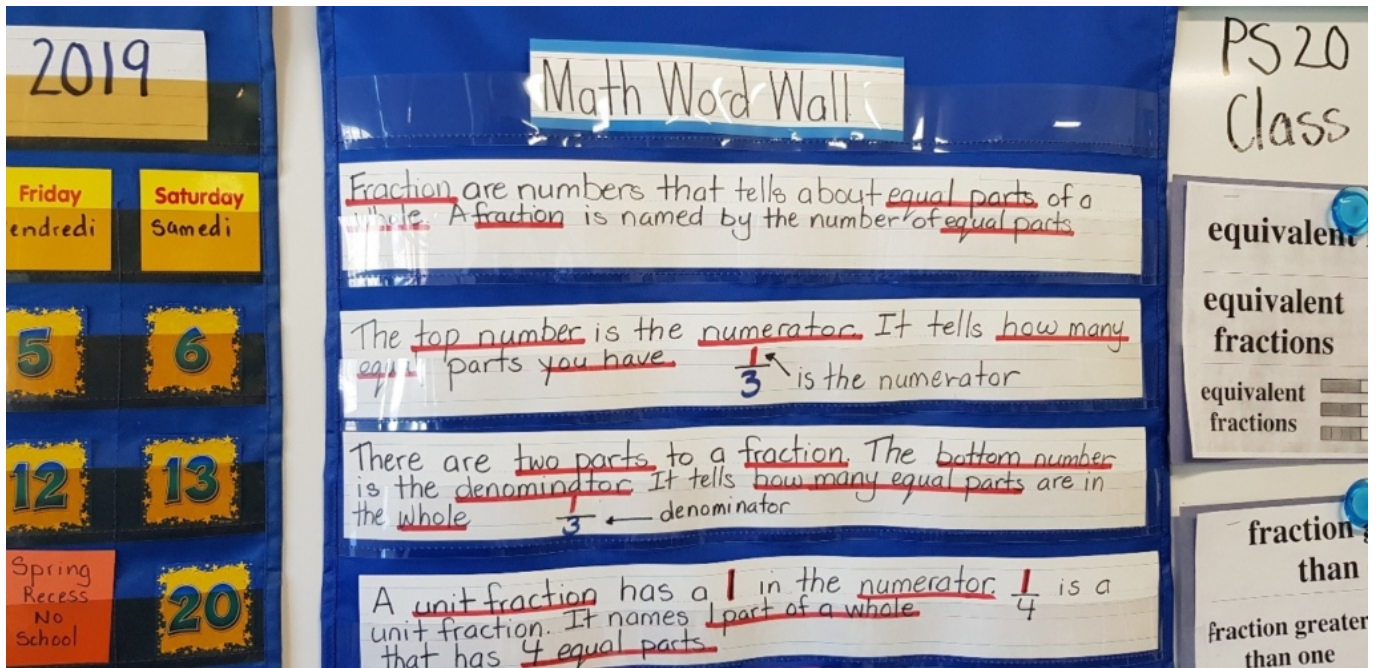 2019
Friday
endredi
Saturday
Samedi
5
6
12
13
Spring
Recess
No
School
20
Math Word Wall
Fraction are numbers that tells about equal parts of a
whole. A fraction is named by the number of equal parts
The top number is the numerator. It tells how many
parts you have.
1
3
is the numerator
There are two parts to a fraction. The bottom number
is the denomindtor. It tells how many equal parts are in
the whole
1
3
denominator
A unit fraction has a 1 in the numerator. 1/4 is a
unit fraction. It names 1 part of a whole
that has 4 equal parts.
PS 20
Class
equivalent
equivalent
fractions
equivalent
fractions
fraction
than
fraction greater
than one